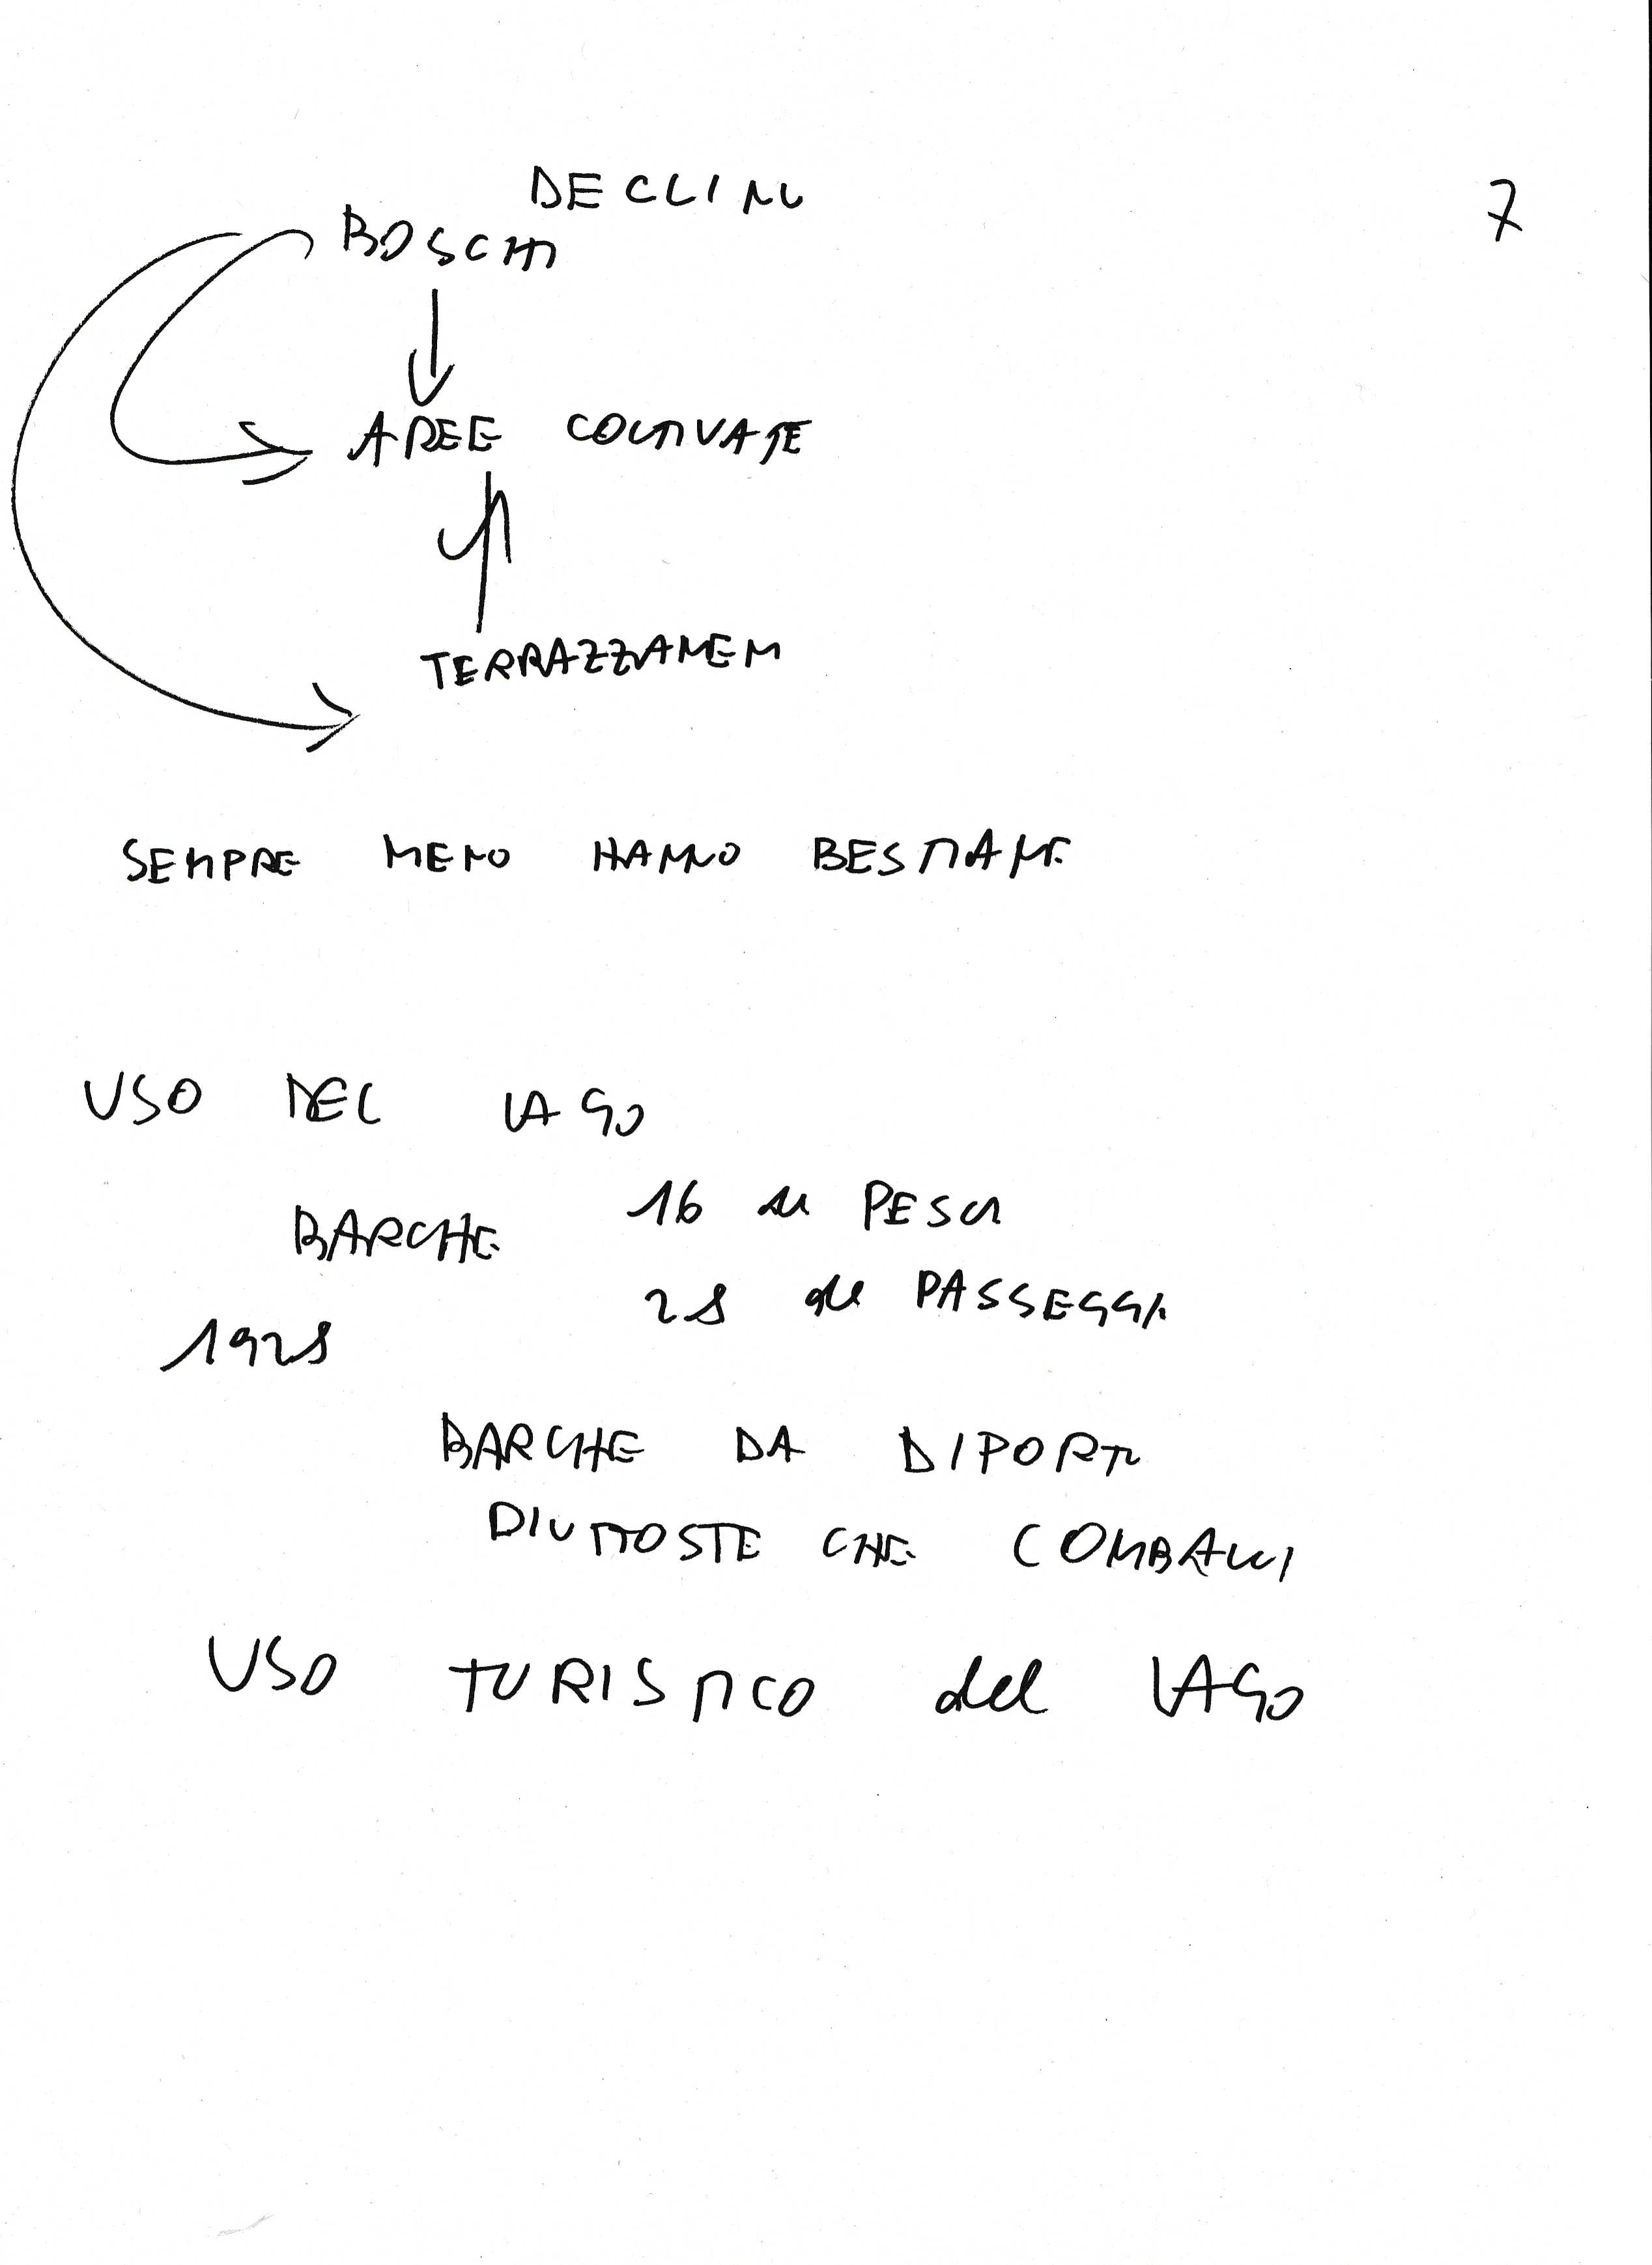 DECLINO
7
BOSCHI
AREE COLTIVATE
TERRAZZAMENTI
SEMPRE MENO HANNO BESTIAME
USO DEL LAGO
BARCHE 16 di PESCA
28 di PASSEGGI
1928
BARCHE DA DIPORTO
PIUTTOSTE CHE COMBALLI
USO TURISTICO del LAGO